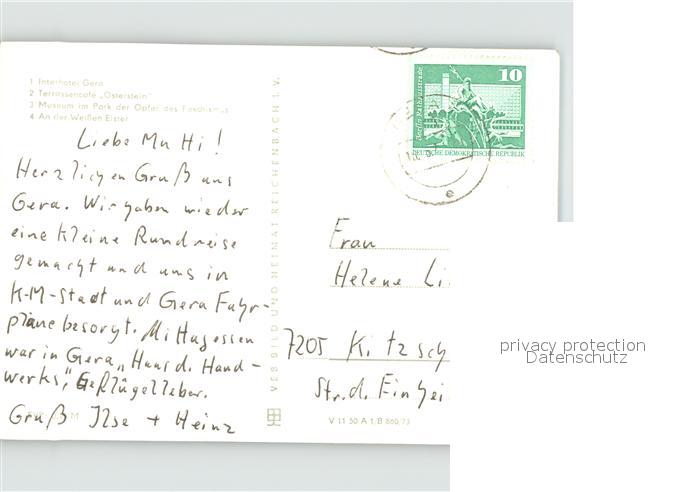 1 Interhotel Gera
2 Terrassencafé „Osterstein"
3 Museum im Park der Opfer des Faschismus
4 An der Weißen Elster
Liebe Mutti!
Herzlichen Gruß aus
Gera. Wir haben wieder
eine kleine Rundreise
gemacht und uns in
K-M-Stadt und Gera Fahr-
pläne besorgt. Mittagessen
war in Gera „Haus d. Hand-
werks", Geflügelleber.
Gruß Ilse + Heinz
VEB BILD UND HEIMAT REICHENBACH I. V.
10
Berlin, Rathausstraße
DEUTSCHE DEMOKRATISCHE REPUBLIK
Frau
Helene Li
7205 Kitzsch
Str. d. Einhei
V 11 50 A 1/B 860/73
privacy protection
Datenschutz